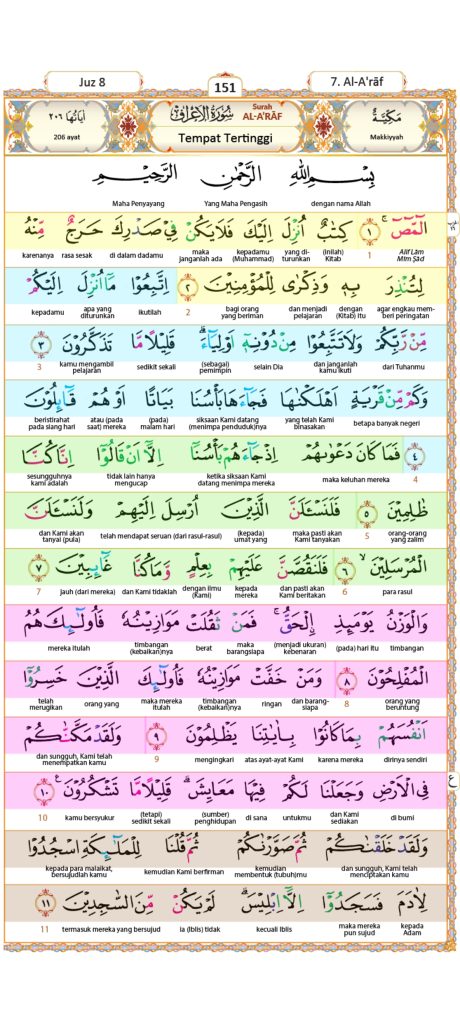 Juz 8
151
7. Al-A'rāf
اٰيَاتُهَا ٢٠٦
206 ayat
سُوْرَةُ الْاَعْرَافِ
Surah
AL-A'RĀF
Tempat Tertinggi
مَكِّيَّةٌ
Makkiyyah
بِسْمِ اللّٰهِ الرَّحْمٰنِ الرَّحِيْمِ
dengan nama Allah
Yang Maha Pengasih
Maha Penyayang
الۤمّۤصۤ ۚ ۝١ كِتٰبٌ اُنْزِلَ اِلَيْكَ فَلَا يَكُنْ فِيْ صَدْرِكَ حَرَجٌ مِّنْهُ
Alif Lām Mim Ṣād
1
(inilah) Kitab
yang di-turunkan
kepadamu (Muhammad)
maka janganlah ada
di dalam dadamu
rasa sesak
karenanya
لِتُنْذِرَ بِهٖ وَذِكْرٰى لِلْمُؤْمِنِيْنَ ۝٢ اِتَّبِعُوْا مَآ اُنْزِلَ اِلَيْكُمْ
agar engkau mem-beri peringatan
dengan (Kitab) itu
dan menjadi pelajaran
bagi orang yang beriman
2
ikutilah
apa yang diturunkan
kepadamu
مِّنْ رَّبِّكُمْ وَلَا تَتَّبِعُوْا مِنْ دُوْنِهٖٓ اَوْلِيَاۤءَۗ قَلِيْلًا مَّا تَذَكَّرُوْنَ ۝٣
dari Tuhanmu
dan janganlah kamu ikuti
selain Dia
(sebagai) pemimpin
sedikit sekali
kamu mengambil pelajaran
3
وَكَمْ مِّنْ قَرْيَةٍ اَهْلَكْنٰهَا فَجَاۤءَهَا بَأْسُنَا بَيَاتًا اَوْ هُمْ قَاۤىِٕلُوْنَ
betapa banyak negeri
yang telah Kami binasakan
siksaan Kami datang (menimpa penduduk)nya
(pada) malam hari
atau (pada saat) mereka
beristirahat pada siang hari
۝٤ فَمَا كَانَ دَعْوٰىهُمْ اِذْ جَاۤءَهُمْ بَأْسُنَآ اِلَّآ اَنْ قَالُوْٓا اِنَّا كُنَّا
4
maka keluhan mereka
ketika siksaan Kami datang menimpa mereka
tidak lain hanya mengucap
sesungguhnya kami adalah
ظٰلِمِيْنَ ۝٥ فَلَنَسْـَٔلَنَّ الَّذِيْنَ اُرْسِلَ اِلَيْهِمْ وَلَنَسْـَٔلَنَّ
orang-orang yang zalim
5
maka pasti akan Kami tanyakan
(kepada) umat yang
telah mendapat seruan (dari rasul-rasul)
dan Kami akan tanyai (pula)
الْمُرْسَلِيْنَۙ ۝٦ فَلَنَقُصَّنَّ عَلَيْهِمْ بِعِلْمٍ وَّمَا كُنَّا غَاۤىِٕبِيْنَ ۝٧
para rasul
6
dan pasti akan Kami beritakan
kepada mereka
dengan ilmu (Kami)
dan Kami tidaklah
jauh (dari mereka)
7
وَالْوَزْنُ يَوْمَىِٕذِ ِۨالْحَقُّۚ فَمَنْ ثَقُلَتْ مَوَازِيْنُهٗ فَاُولٰۤىِٕكَ هُمُ
timbangan
(pada) hari itu
(menjadi ukuran) kebenaran
maka barangsiapa
berat
timbangan (kebaikan)nya
mereka itulah
الْمُفْلِحُوْنَ ۝٨ وَمَنْ خَفَّتْ مَوَازِيْنُهٗ فَاُولٰۤىِٕكَ الَّذِيْنَ خَسِرُوْٓا
orang yang beruntung
8
dan barang-siapa
ringan
timbangan (kebaikan)nya
maka mereka itulah
orang yang
telah merugikan
اَنْفُسَهُمْ بِمَا كَانُوْا بِاٰيٰتِنَا يَظْلِمُوْنَ ۝٩ وَلَقَدْ مَكَّنّٰكُمْ
dirinya sendiri
karena mereka
atas ayat-ayat Kami
mengingkari
9
dan sungguh, Kami telah menempatkan kamu
فِى الْاَرْضِ وَجَعَلْنَا لَكُمْ فِيْهَا مَعَايِشَۗ قَلِيْلًا مَّا تَشْكُرُوْنَ ۝١٠
di bumi
dan Kami sediakan
untukmu
di sana
(sumber) penghidupan
(tetapi) sedikit sekali
kamu bersyukur
10
ع
وَلَقَدْ خَلَقْنٰكُمْ ثُمَّ صَوَّرْنٰكُمْ ثُمَّ قُلْنَا لِلْمَلٰۤىِٕكَةِ اسْجُدُوْا
dan sungguh, Kami telah menciptakan kamu
kemudian membentuk (tubuh)mu
kemudian Kami berfirman
kepada para malaikat, bersujudlah kamu
لِاٰدَمَ فَسَجَدُوْٓا اِلَّآ اِبْلِيْسَۗ لَمْ يَكُنْ مِّنَ السّٰجِدِيْنَ ۝١١
kepada Adam
maka mereka pun sujud
kecuali Iblis
ia (Iblis) tidak
termasuk mereka yang bersujud
11